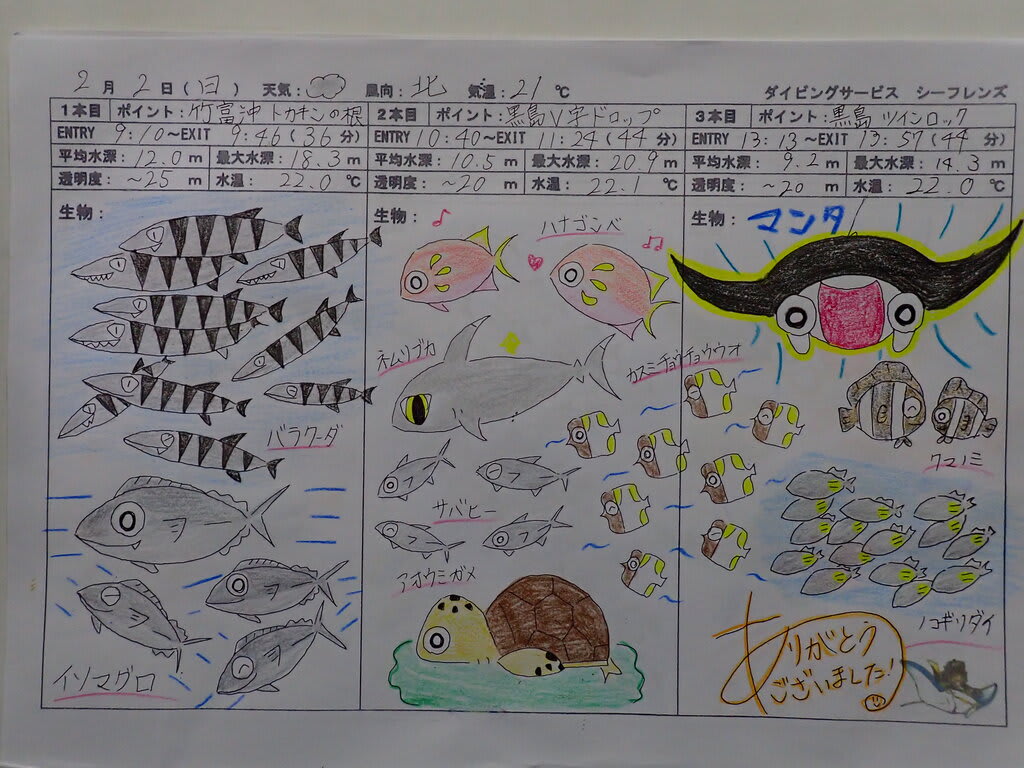 2月2日(日) 天気: 風向:北 気温:21℃
ダイビングサービス シーフレンズ
1本目 ポイント:竹富沖 トカキンの根
ENTRY 9:10～EXIT 9:46(36分)
平均水深:12.0m 最大水深:18.3m
透明度:~25m 水温:22.0℃
生物:
バラクーダ
イソマグロ
2本目 ポイント:黒島V字ドロップ
ENTRY 10:40～EXIT 11:24(44分)
平均水深:10.5m 最大水深:20.9m
透明度:~20m 水温:22.1℃
生物:
ハナゴンベ
ネムリブカ
カスミチョウチョウウオ
サバヒー
アオウミガメ
3本目 ポイント:黒島 ツインロック
ENTRY 13:13～EXIT 13:57(44分)
平均水深:9.2m 最大水深:14.3m
透明度:~20m 水温:22.0℃
生物:マンタ
クマノミ
ノコギリダイ
ありがとう
ございました!